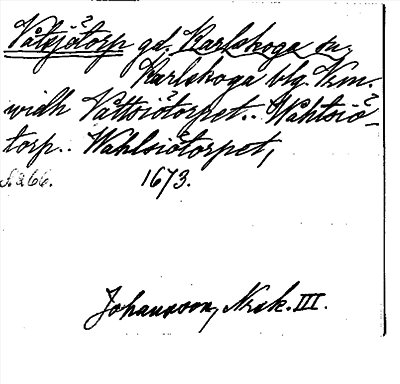 Våtsjötorp gd. Karlskoga sn,
Karlskoga bg. Vrm.
widh Våttsiötorpet.. Wåhtsiö-
torp.. Wåhlsiötorpet,
S. 266. 1673.
Johansson, Krsk. III.